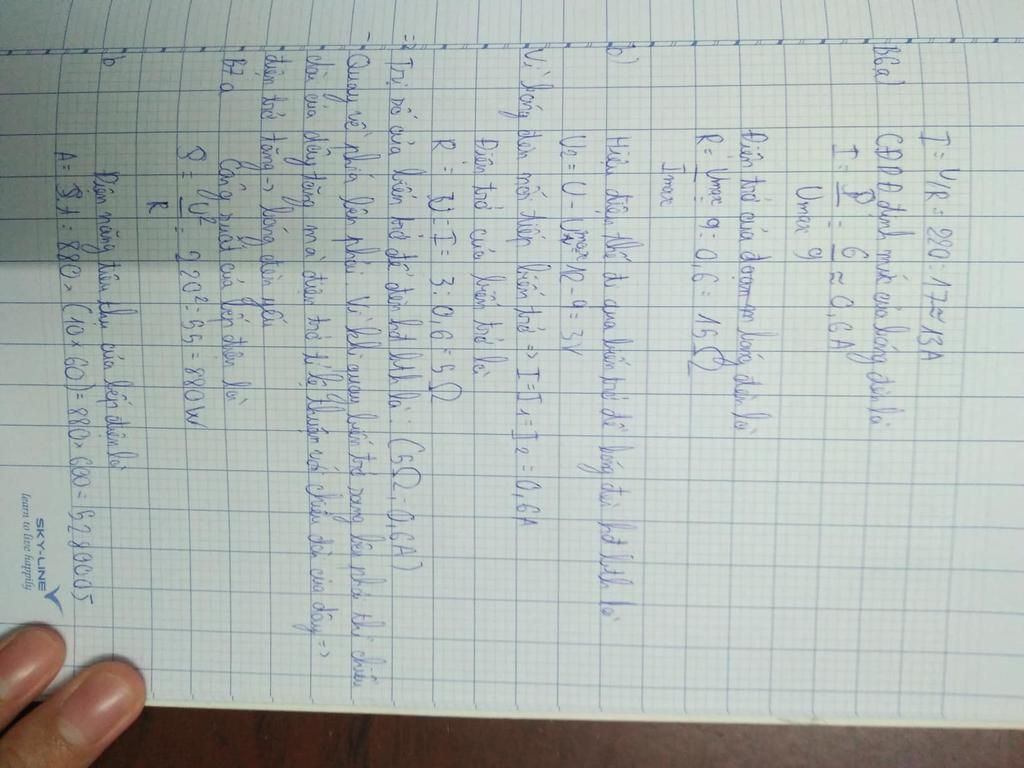 I = U/R = 220 : 17 ≈ 13A
B6a) CĐDĐ định mức của bóng đèn là
I = P/Umax = 6/9 ≈ 0,6A
Điện trở của đoạn bóng đèn là
R = Umax/Imax = 9 : 0,6 = 15Ω
b) Hiệu điện thế đi qua biến trở để bóng đèn hđ bth là
U2 = U - Umax = 12 - 9 = 3V
Vì bóng đèn nối tiếp biến trở => I = I1 = I2 = 0,6A
Điện trở của biến trở là
R = U : I = 3 : 0,6 = 5Ω
=> Trị số của biến trở để đèn hđ bth là : (5Ω ; 0,6A)
- Quay về phía bên phải. Vì khi quay biến trở sang bên phải thì chiều
dài của dây tăng mà điện trở tỉ lệ thuận với chiều dài của dây =>
điện trở tăng -> bóng đèn yếu
B7 a Công suất của bếp điện là
P = U²/R = 220² : 55 = 880W
b Điện năng tiêu thụ của bếp điện là
A = P.t = 880 × (10 × 60) = 880 × 600 = 528000J
SKY-LINE
learn to live happily